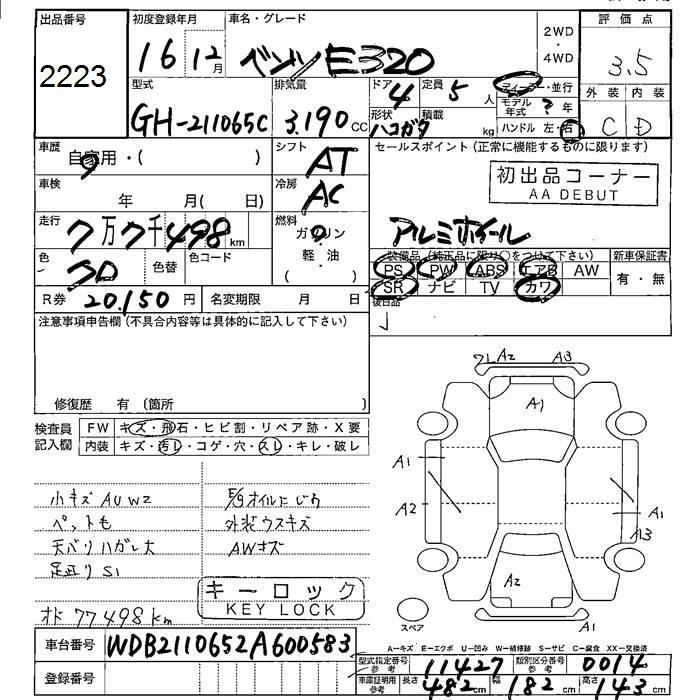 出品番号 初度登録年月 車名・グレード 2WD・4WD 評価点
2223 16 12月 ベンツ E320 3.5
型式 排気量 ドア 4 定員 5人 ディーラー・並行 外装 内装
GH-211065C 3.190 CC 形状 ハコガタ 積載 kg モデル年式 ? 年 C D
ハンドル 左・右
車歴 自家用・( ) シフト AT セールスポイント(正常に機能するものに限ります)
車検 年 月( 日) 冷房 AC 初出品コーナー
AA DEBUT
走行 7万7千498km 燃料 ガソリン・軽・油 ( ) アルミホイール
色 色替 色コード 装備品(純正品に限り○をつけて下さい) 新車保証書
PS PW ABS エアB AW 有・無
R券 20,150円 名変期限 月 日 SR ナビ TV カワ
後日品
注意事項申告欄(不具合内容等は具体的に記入して下さい)
修復歴 有 (箇所
検査員記入欄 FW キズ・飛石・ヒビ割・リペア跡・X要
内装 キズ・汚レ・コゲ・穴・スレ・キレ・破レ
小キズ AU W2 E/gオイルにじり
ペットも 外装ウスキズ
天バリハガレ大 AWキズ
足廻り S1
キーロック
KEY LOCK
オド 77498km
A2 A3
A1
A1
A2 A1
A3
A2
スペア A1
A-キズ E-エクボ U-凹み W-補修跡 S-サビ C-腐食 XX-交換済
車台番号 WDB2110652A600583
登録番号
型式指定番号 参考 11427 類別区分番号 参考 0014
車庫証明用 参考 長さ 482cm 幅 182cm 高さ 143cm